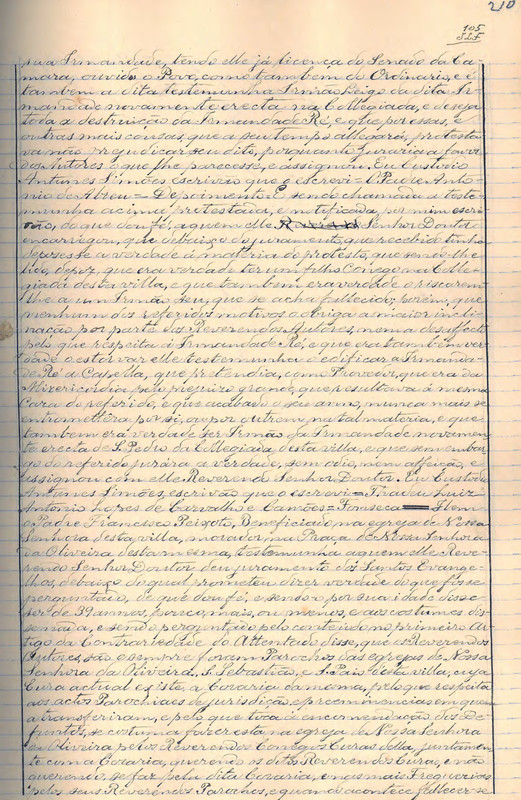 210
105
SLF
sua Irmandade, tendo elle já licença do Senado da Ca-
mara, ouvido o Povo, como tambem do Ordinario, e é
tambem a dita testemunha Irmão Leigo da dita Ir-
mandade novamente erecta na Collegiada, e deseja
toda a destruição da Irmandade Ré, e que por essas, e
outras mais causas, que a seu tempo allegará, protesta
va não prejudicar seu dito, porquanto juraria a favor
dos Autores o que lhe parecesse, e assignou. Eu Custodio
Antunes Simões escrivão que o escrevi = O Padre Anto-
nio de Abreu = Depoimento. E sendo chamada a teste-
munha acima protestada, e notificada, por mim escri-
vão, do que dou fé, a quem elle Senhor Doutor
encarregou, que debaixo do juramento, que recebido tinha
depozesse a verdade á materia do protesto, que sendo-lhe
lido, depoz, que era verdade ter um filho Conego na Colle-
giada desta villa, e que tambem era verdade o riscarem
lhe a um Irmão seu, que se acha fallecido; porém, que
nenhum dos referidos motivos o obriga a maior incli-
nação por parte dos Reverendos Autores, nem a desaffecto
pelo que respeita á Irmandade Ré, e que era tambem ver-
dade o estorvar elle testemunha o edificar a Irmanda-
de Ré a Capella, que pretendia, como Provedor, que era da
Misericordia pelo prejuizo grande, que resultava á mesma
Caza do referido, e que acabado o seu anno, nunca mais se
entromettera por si, ou por outrem, em tal materia, e que
tambem era verdade ser Irmão da Irmandade novamen-
te erecta de S. Pedro da Collegiada desta villa, e que sem embar-
go do referido jurára a verdade, sem odio, nem affeição, e
assignou com elle Reverendo Senhor Doutor. Eu Custodio
Antunes Simões, escrivão que o escrevi = Thadeu Luiz
Antonio Lopes de Carvalho e Camões = Fonseca = Item
o Padre Francisco Peixoto, Beneficiado na egreja de Nossa
Senhora desta villa, morador na Praça de Nossa Senhora
da Oliveira desta mesma, testemunha a quem elle Reve-
rendo Senhor Doutor deu juramento dos Santos Evange-
lhos, debaixo do qual prometeu dizer verdade do que fosse
perguntado, do que dou fé, e sendo-o, por sua idade disse
ser de 39 annos, pouco mais, ou menos, e aos costumes dis-
se nada, e sendo perguntado pelo conteúdo no primeiro Ar-
tigo da Contrariedade do Attentado disse, que os Reverendos
Autores, são e sempre foram Parochos das egrejas de Nossa
Senhora da Oliveira, S. Sebastião, e S. Paio desta villa, cuja
Cura actual existe, a Coraria da mesma, pelo que respeita
aos actos Parochiaes de jurisdição, e preeminencias em quem
a transferiram, e pelo que toca á encommendação dos De-
funtos, se costuma fazer esta na egreja de Nossa Senhora
da Oliveira pelos Reverendos Conegos Curas della, juntamen-
te com a Coraria, querendo os ditos Reverendos Curas, e não
querendo, se faz pela dita Coraria, e nas mais Freguezias
pelos seus Reverendos Parochos, e quando acontece fallecer-se